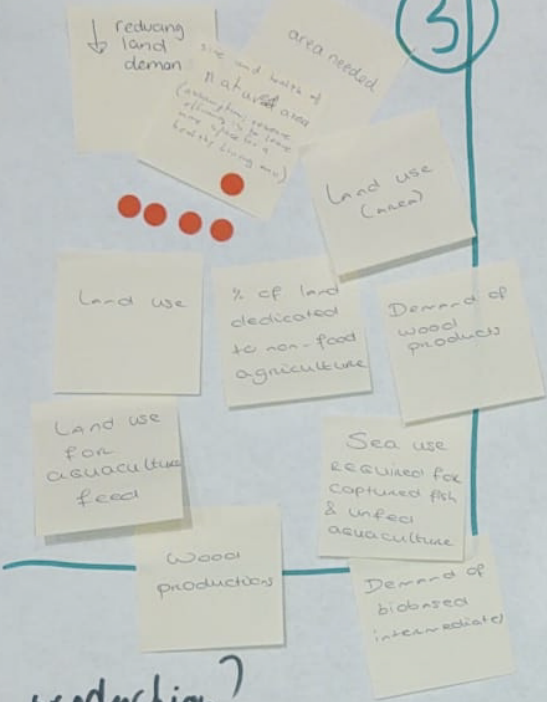 3
↓ reducing
land
deman
area needed
size and health of
natural area
(assumption: resource
efficiency is to leave
more space for a
healthy living env)
Land use
(area)
Land use
% of land
dedicated
to non-food
agriculture
Demand of
wood
products
Land use
for
aquaculture
feed
Sea use
required for
captured fish
& unfed
aquaculture
Wood
productions
Demand of
biobased
intermediates
production?